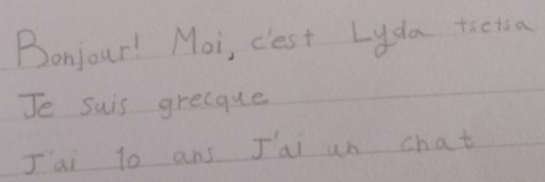 Bonjour! Moi, c'est Lyda tsetsa
Je suis grecque
J'ai 10 ans. J'ai un chat